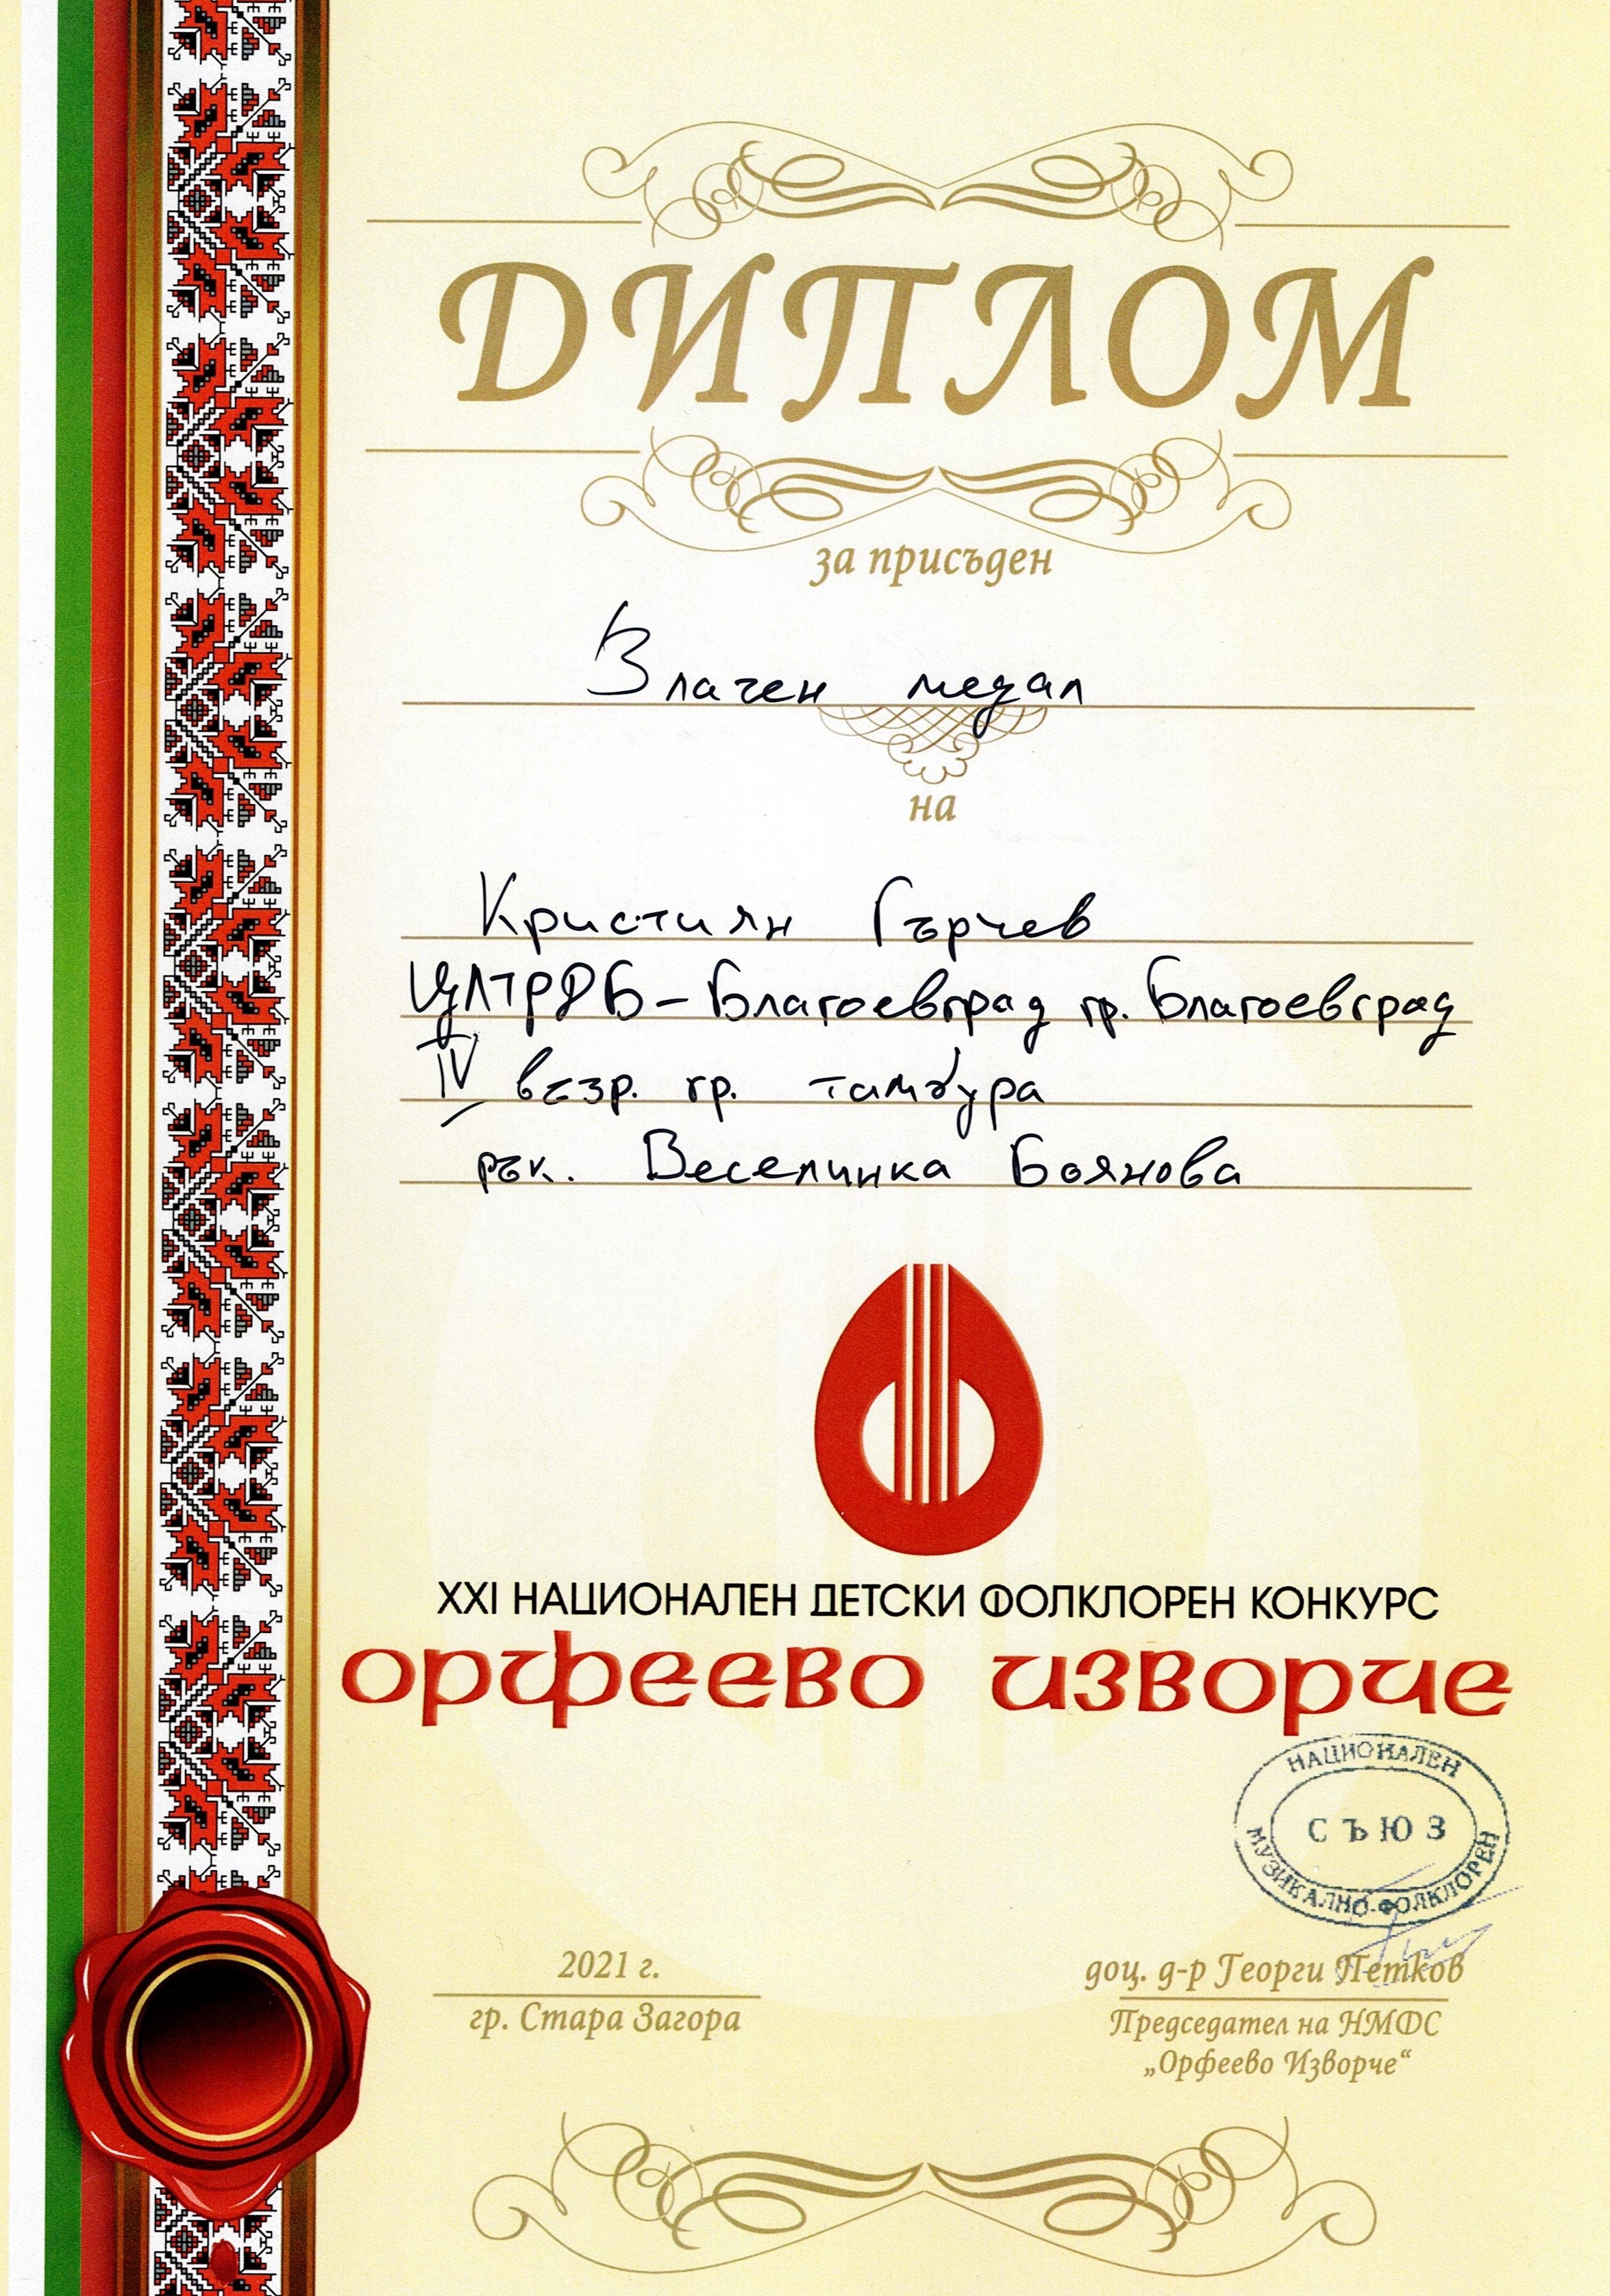 ДИПЛОМ
за присъден
Златен медал
на
Кристиян Гърчев
ЦПЛРДБ-Благоевград гр. Благоевград
IV възр. гр. тамбура
рък. Веселинка Боянова
XXI НАЦИОНАЛЕН ДЕТСКИ ФОЛКЛОРЕН КОНКУРС
орфеево изворче
НАЦИОНАЛЕН
СЪЮЗ
МУЗИКАЛНО-ФОЛКЛОРЕН
2021 г.
гр. Стара Загора
доц. д-р Георги Петков
Председател на НМФС
„Орфеево Изворче“